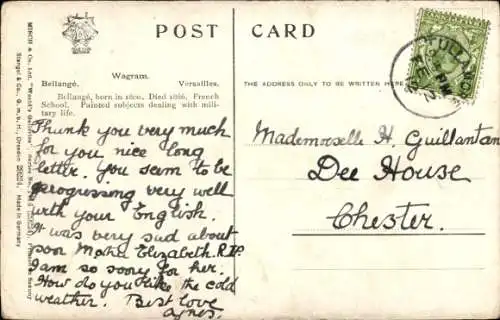 POST CARD
Wagram.
Bellangé. Versailles.
Bellangé, born in 1800. Died 1866, French
School. Painted subjects dealing with mili-
tary life.
THE ADDRESS ONLY TO BE WRITTEN HERE
Thank you very much
for you nice long
letter. You seem to be
progressing very well
with your English.
It was very sad about
poor Elizabeth. R.I.P.
I am so sorry for her.
How do you like the cold
weather. Best love
Agnes.
Mademoiselle H. Guillantan
Dee House
Chester.
MISCH & Co. Ltd. "World's Galleries" Series No.
Stengel & Co., G.m.b.H., Dresden Made in Germany